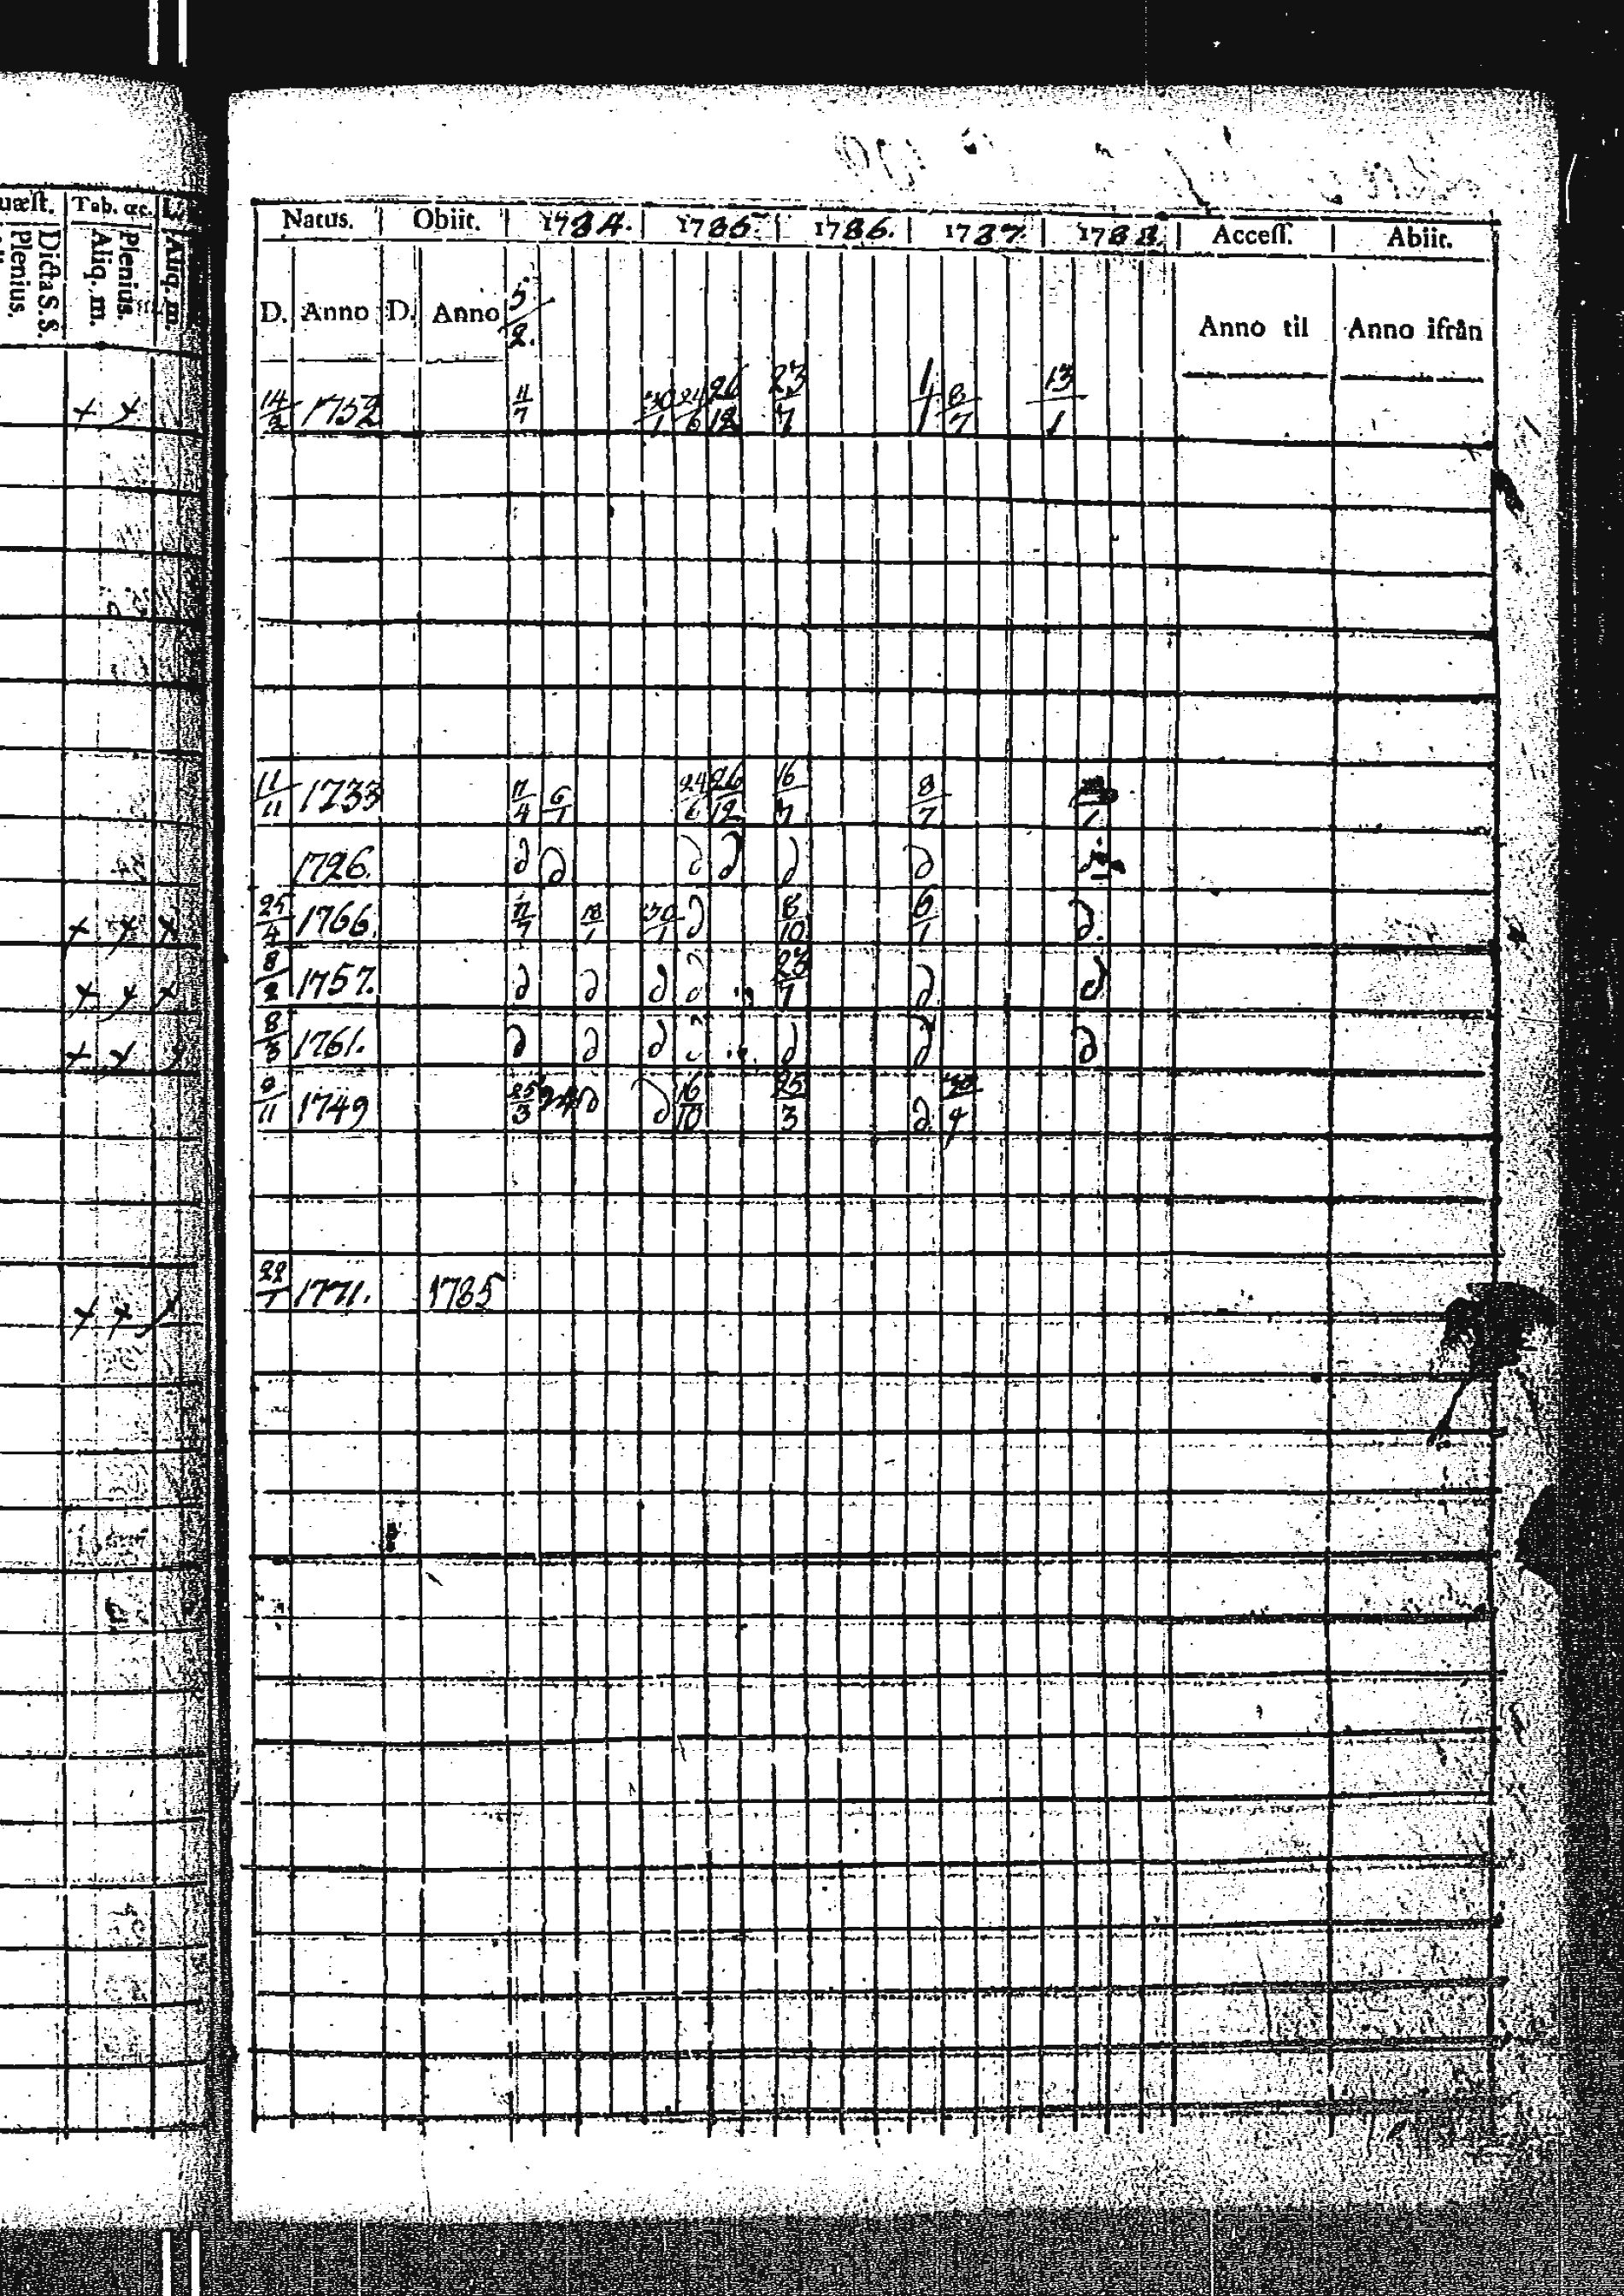 uæſt. Tab. œc. L
Dicta S. S. Plenius. Plenius. Aliq. m. Aliq. m.
Natus. Obiit. 1784. 1785. 1786. 1787. 1788. Acceſſ. Abiit.
D. Anno D. Anno 5/2. Anno til Anno ifrån
+ + 14/2 1752 11/7 30/1 24/6 26/12 23/7 1/1 8/7 13/1
11/11 1733 11/4 6/1 24/6 26/12 16/7 8/7
1726. d d d d d d
+ + + 25/4 1766. 11/7 18/1 30/1 d 8/10 6/1 d.
+ + + 8/2 1757. d d d d 23/7 d d
+ + + 8/3 1761. d d d d d d d
9/11 1749 25/3 d d 16/10 25/3 d.
+ + + 22/1 1771. 1785